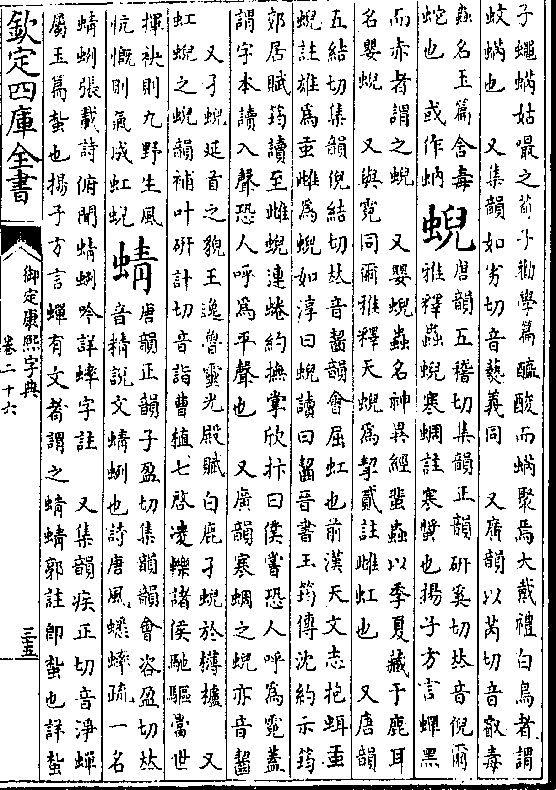 子蠅蜹姑嘬之荀子勸學篇醯酸而蜹聚焉大戴禮白鳥者謂
蚊蜹也　又集韻如劣切音爇義同　又廣韻以芮切音叡毒
蟲名玉篇含毒
蛇也　或作蚋
蜺
唐韻五稽切集韻正韻硏奚切𠀤音倪爾
雅釋蟲蜺寒蜩註寒螿也揚子方言蟬黑
而赤者謂之蜺　又與霓同爾雅釋天蜺爲挈貳註雌虹也　又唐韻
名嬰蜺　又嬰蜺蟲名神異經蜚蟲以季夏藏于鹿耳
五結切集韻倪結切𠀤音齧韻會屈虹也前漢天文志抱珥䖝
蜺註雄爲䖝雌爲蜺如淳曰蜺讀曰齧晉書王筠傳沈約示筠
郊居賦筠讀至雌蜺連蜷約撫掌欣抃曰僕嘗恐人呼爲霓蓋
謂字本讀入聲恐人呼爲平聲也　又廣韻寒蜩之蜺亦音齧
　又孑蜺延首之貌王逸魯靈光殿賦白鹿孑蜺於欂櫨　又
虹蜺之蜺韻補叶硏計切音詣曹植七啓凌轢諸侯馳驅當世
揮袂則九野生風
忼慨則氣成虹蜺
蜻
唐韻正韻子盈切集韻韻會咨盈切𠀤
音精說文蜻蛚也詩唐風蟋蟀疏一名
蜻蛚張載詩俯聞蜻蛚吟詳蟀字註　又集韻疾正切音淨蟬
屬玉篇蚻也揚子方言蟬有文者謂之蜻蜻郭註卽蚻也詳蚻
欽定四庫全書
御定康熙字典
卷二十六
三五